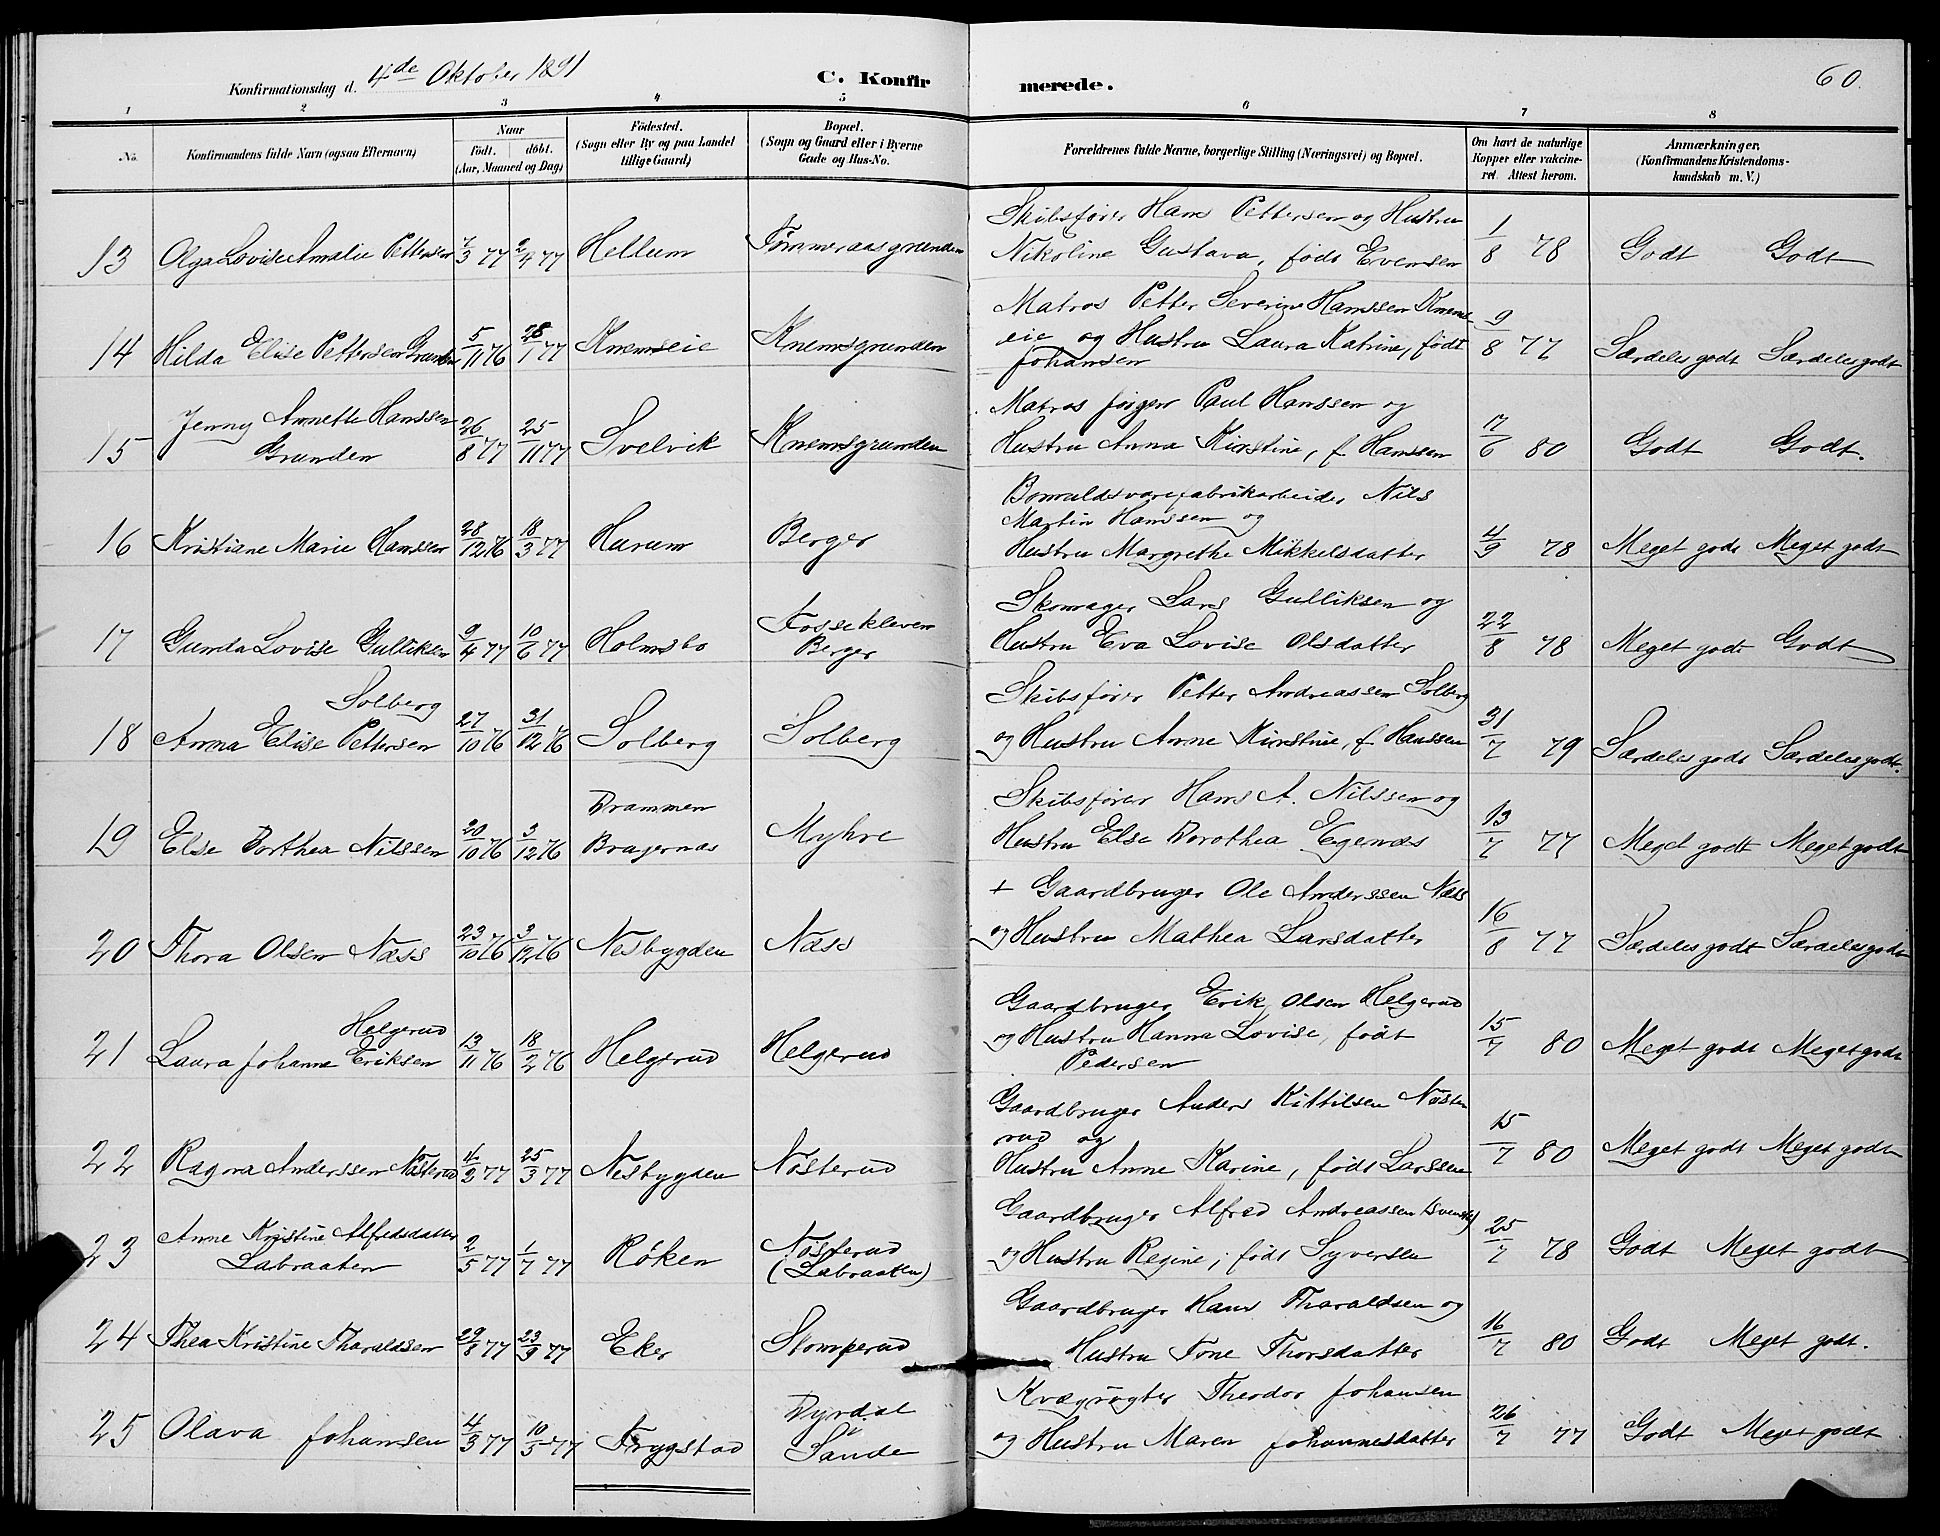 Konfirmationsdag d. 4de Oktober 1891
C. Konfirmerede.
60.
1 2 3 4 5 6 7 8
No.
Konfirmandens fulde Navn (ogsaa Efternavn)
Naar
Født. døbt.
(Aar, Maaned og Dag)
Fødested.
(Sogn eller By og paa Landet
tillige Gaard)
Bopæl.
(Sogn og Gaard eller i Byerne
Gade og Hus-No.
Forældrenes fulde Navne, borgerlige Stilling (Næringsvei) og Bopæl.
Om havt de naturlige
Kopper eller vakcine-
ret. Attest herom.
Anmærkninger.
(Konfirmandens Kristendoms-
kundskab m. V.)
13 Olga Lovise Amalie Pettersen 7/3 77 2/4 77 Hellum Tømmeraasgrunden
Skibsfører Hans Pettersen og Hustru
Nikoline Gustava, født Evensen 1/8 78 Godt Godt
14 Hilda Elise Pettersen Grunden 5/11 76 28/1 77 Knemseie Knemsgrunden
Matros Petter Severin Hanssen Knems
eie og Hustru Laura Katrine, født
Johansen 9/8 77 Særdeles godt Særdeles godt
15 Jenny Annette Hanssen
Grunden 26/8 77 25/11 77 Svelvik Knemsgrunden
Matros Jørgen Paul Hanssen og
Hustru Anna Kirstine, f. Hanssen 17/6 80 Godt Godt.
16 Kristiane Marie Hanssen 28/12 76 18/3 77 Hurum Berger
Bomuldsvarefabrikarbeider Nils
Martin Hanssen og
Hustru Margrethe Mikkelsdatter 4/9 78 Meget godt Meget godt
17 Gunda Lovise Gulliksen 9/4 77 10/6 77 Holmsbo Fossekleven
Berger
Skomager Lars Gulliksen og
Hustru Eva Lovise Olsdatter 22/8 78 Meget godt Godt
18 Anna Elise Pettersen
Solberg 27/10 76 31/12 76 Solberg Solberg
Skibsfører Petter Andreassen Solberg
og Hustru Anne Kirstine, f. Hanssen 31/7 79 Særdeles godt Særdeles godt.
19 Else Dorthea Nilssen 20/10 76 3/12 76 Drammen
Bragernæs Myhre
Skibsfører Hans A. Nilssen og
Hustru Else Dorothea Egenæs 13/7 77 Meget godt Meget godt
20 Thora Olsen Næss 23/10 76 3/12 76 Nesbygden Næss
+ Gaardbruger Ole Anderssen Næss
og Hustru Mathea Larsdatter 16/8 77 Særdeles godt Særdeles godt
21 Laura Johanne Eriksen
Helgerud 13/11 76 18/2 76 Helgerud Helgerud
Gaardbruger Erik Olsen Helgerud
og Hustru Hanna Lovise, født
Pedersen 15/7 80 Meget godt Meget godt
22 Ragna Anderssen Nøsterud 4/2 77 25/3 77 Nesbygden Nøsterud
Gaardbruger Anders Kittilsen Nøste
rud og
Hustru Anne Karine, født Larssen 15/7 80 Meget godt Meget godt
23 Anne Kristine Alfredsdatter
Labraaten 2/5 77 1/7 77 Røken Nøsterud
(Labraaten)
Gaardbruger Alfred Andreassen (svensk)
og Hustru Regine, født Syversen 25/7 78 Godt Meget godt
24 Thea Kristine Tharaldsen 29/8 77 23/9 77 Eker Stomperud
Gaardbruger Hans Tharaldsen og
Hustru Tone Thorsdatter 16/7 80 Godt Meget godt.
25 Olava Johansen 4/3 77 10/5 77 Trygstad Dyrdal
Sande
Kvægrøgter Theodor Johansen
og Hustru Maren Johannesdatter 26/7 77 Godt Meget godt